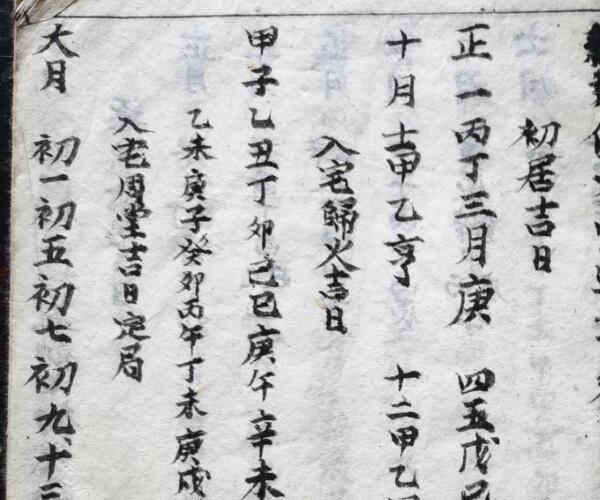 初居吉日
正一丙丁三月庚 四五戊
十月士甲乙亨 十二甲乙
入宅歸火吉日
甲子乙丑丁卯己巳庚午辛未
乙未庚子癸卯丙午丁未庚戌
入宅周堂吉日定局
大月 初一初五初七初九十三